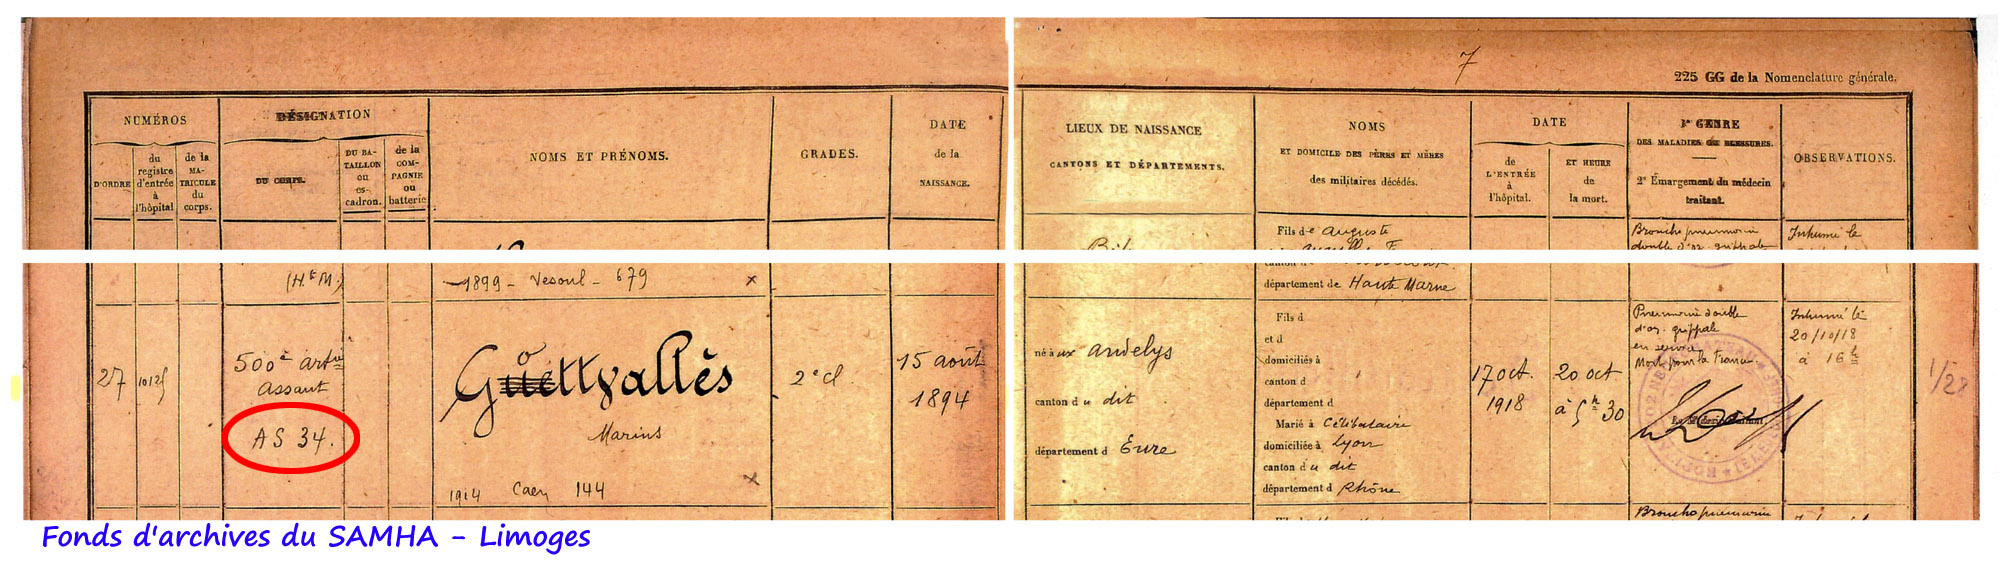 7
225 GG de la Nomenclature générale.
NUMÉROS
D'ORDRE
du
registre
d'entrée
à
l'hôpital
de la
MA-
TRICULE
du
corps.
DÉSIGNATION
DU CORPS.
DU BA-
TAILLON
ou
es-
cadron.
de la
COM-
PAGNIE
ou
batterie
NOMS ET PRÉNOMS.
GRADES.
DATE
de la
NAISSANCE.
LIEUX DE NAISSANCE
CANTONS ET DÉPARTEMENTS.
NOMS
ET DOMICILE DES PÈRES ET MÈRES
des militaires décédés.
DATE
de
L'ENTRÉE
à
l'hôpital.
ET HEURE
de
la mort.
1° GENRE
DES MALADIES OU BLESSURES.
2° Émargement du médecin
traitant.
OBSERVATIONS.
Fils de Auguste
Broncho pneumonie
double d'or. grippale
Inhumé le
(H.te M.)
1899 - Vesoul - 679 x
département de Haute Marne
27
500e art.ie
assaut
AS 34.
Goettvallès
Marius
1914 Caen 144 x
2e cl.
15 août
1894
né aux andelys
canton du dit
département d Eure
Fils d
et d
domiciliés à
canton d
département d
Marié à Célibataire
domiciliée à Lyon
canton du dit
département d Rhône
17 oct.
1918
20 oct
à 5h 30
Pneumonie double
d'or. grippale
en service
Mort pour la France
Inhumé le
20/10/18
à 16h
1/28
Broncho pneumonie
Fonds d'archives du SAMHA - Limoges